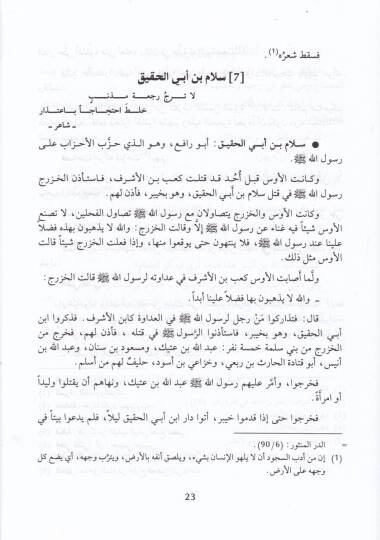 فسقط شعرُه(1).
[7] سلام بن أبي الحقيق
لا تـرجُ رجعـة مـذنـبٍ
خلـط احتجـاجـاً بـاعتـذار
ـ شاعر ـ
● سـلام بـن أبـي الحقيق: أبـو رافـع، وهـو الـذي حـزّب الأحـزاب علـى
رسول الله ﷺ.
وكـانـت الأوس قبـل أُحُـد قـد قتلـت كعـب بن الأشرف، فـاستـأذن الخـزرج
رسول الله ﷺ في قتل سلام بن أبي الحقيق، وهو بخيبر، فأذن لهم.
وكانت الأوس والخزرج يتصاولان مع رسول الله ﷺ تصاول الفحلين، لا تصنع
الأوس شيئاً فيه غناء عن رسول الله ﷺ إلّا وقالت الخزرج: والله لا يذهبون بهذه فضلاً
علينا عند رسول الله ﷺ، فلا ينتهون حتى يوقعوا منها، وإذا فعلت الخزرج شيئاً قالت
الأوس مثل ذلك.
ولمّا أصابت الأوس كعب بن الأشرف في عداوته لرسول الله ﷺ قالت الخزرج:
ـ والله لا يذهبون بها فضلاً علينا أبداً.
قال: فتذاكروا مَنْ رجل لرسول الله ﷺ في العداوة كابن الأشرف. فذكروا ابن
أبي الحقيق، وهو بخيبر، فاستأذنوا الرَّسول ﷺ في قتله، فأذن لهم، فخرج من
الخزرج من بني سلمة خمسة نفر: عبد الله بن عتيك، ومسعود بن سنان، وعبد الله بن
أنيس، أبو قتادة الحارث بن ربعي، وخزاعي بن أسود، حليفٌ لهم من أسلم.
فخرجوا، وأمَّر عليهم رسول الله ﷺ عبد الله بن عتيك، ونهاهم أن يقتلوا وليداً
أو امرأةً.
فخرجوا حتى إذا قدموا خيبر، أتوا دار ابن أبي الحقيق ليلاً، فلم يدعوا بيتاً في
= الدر المنثور: (90/6).
(1) إن من أدب السجود أن لا يلهو الإنسان بشيء، ويلصق أنفه بالأرض، ويترّب وجهه، أي يضع كل
وجهه على الأرض.
23